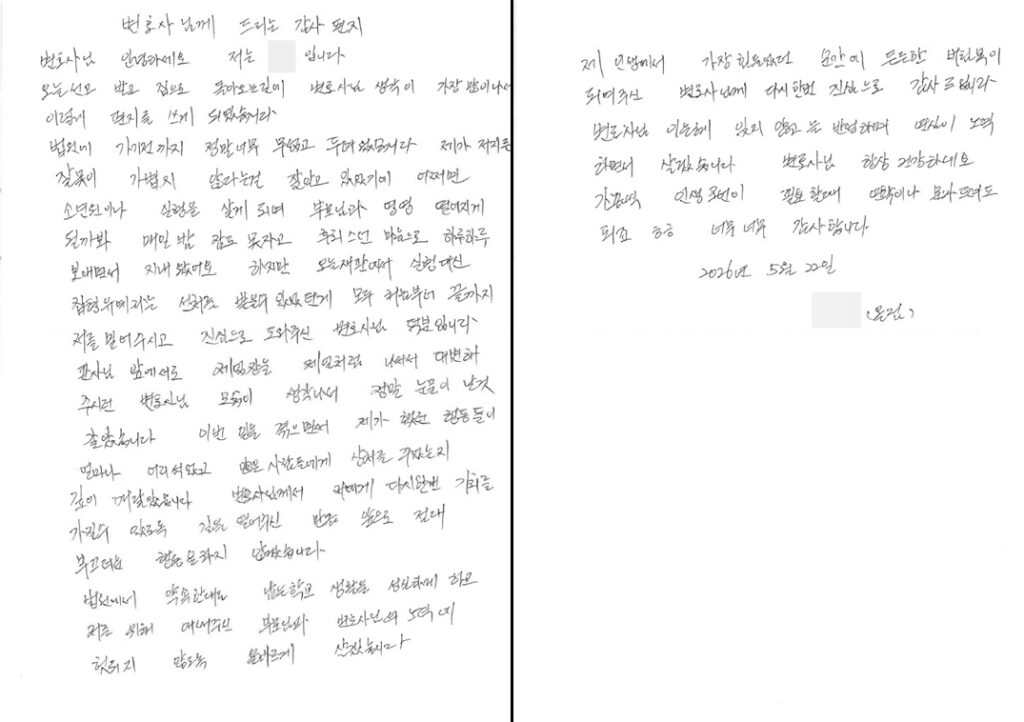 변호사님께 드리는 감사 편지
변호사님 안녕하세요 저는 입니다
오늘 선고 받고 집으로 돌아오는길에 변호사님 생각이 가장 많이나서
이렇게 편지를 쓰게 되었습니다
법원에 가기전까지 정말너무 무섭고 두려웠습니다 제가 저지른
잘못이 가볍지 않다는걸 잘알고 있었기에 어쩌면
소년원이나 실형을 살게 되며 부모님과 영영 떨어지게
될까봐 매일 밤 잠도 못자고 후회스런 마음으로 하루하루
보내면서 지내왔어요 하지만 오늘재판에서 실형대신
집행유예라는 선처를 받을수 있었던게 모두 처음부터 끝까지
저를 믿어주시고 진심으로 도와주신 변호사님 덕분입니다
판사님 앞에서도 제입장을 제일처럼 나서서 대변해
주시던 변호사님 모습이 생각나서 정말 눈물이 날것
같았습니다 이번 일을 겪으면서 제가 했던 행동들이
얼마나 어리석었고 많은 사람들에게 상처를 주었는지
깊이 깨달았습니다 변호사님께서 저에게 다시한번 기회를
가질수 있도록 길을 열어주신 만큼 앞으로 절대
부끄러운 행동을하지 않겠습니다
법원에서 약속한대로 남은학교 생활을 성실하게 하고
저를 위해 애써주신 부모님과 변호사님의 노력이
헛되지 않도록 올바르게 살겠습니다
제 인생에서 가장 힘들었던 순간에 든든한 버팀목이
되어주신 변호사님께 다시한번 진심으로 감사드립니다
변호사님 은혜 잊지 않고 늘 반성하며 열심히 노력
하면서 살겠습니다 변호사님 항상 건강하세요
가끔씩 인생 조언이 필요할때 연락이나 문자드려도
되죠 ㅎㅎ 너무너무 감사합니다
2026년 5월 22일
(올림)